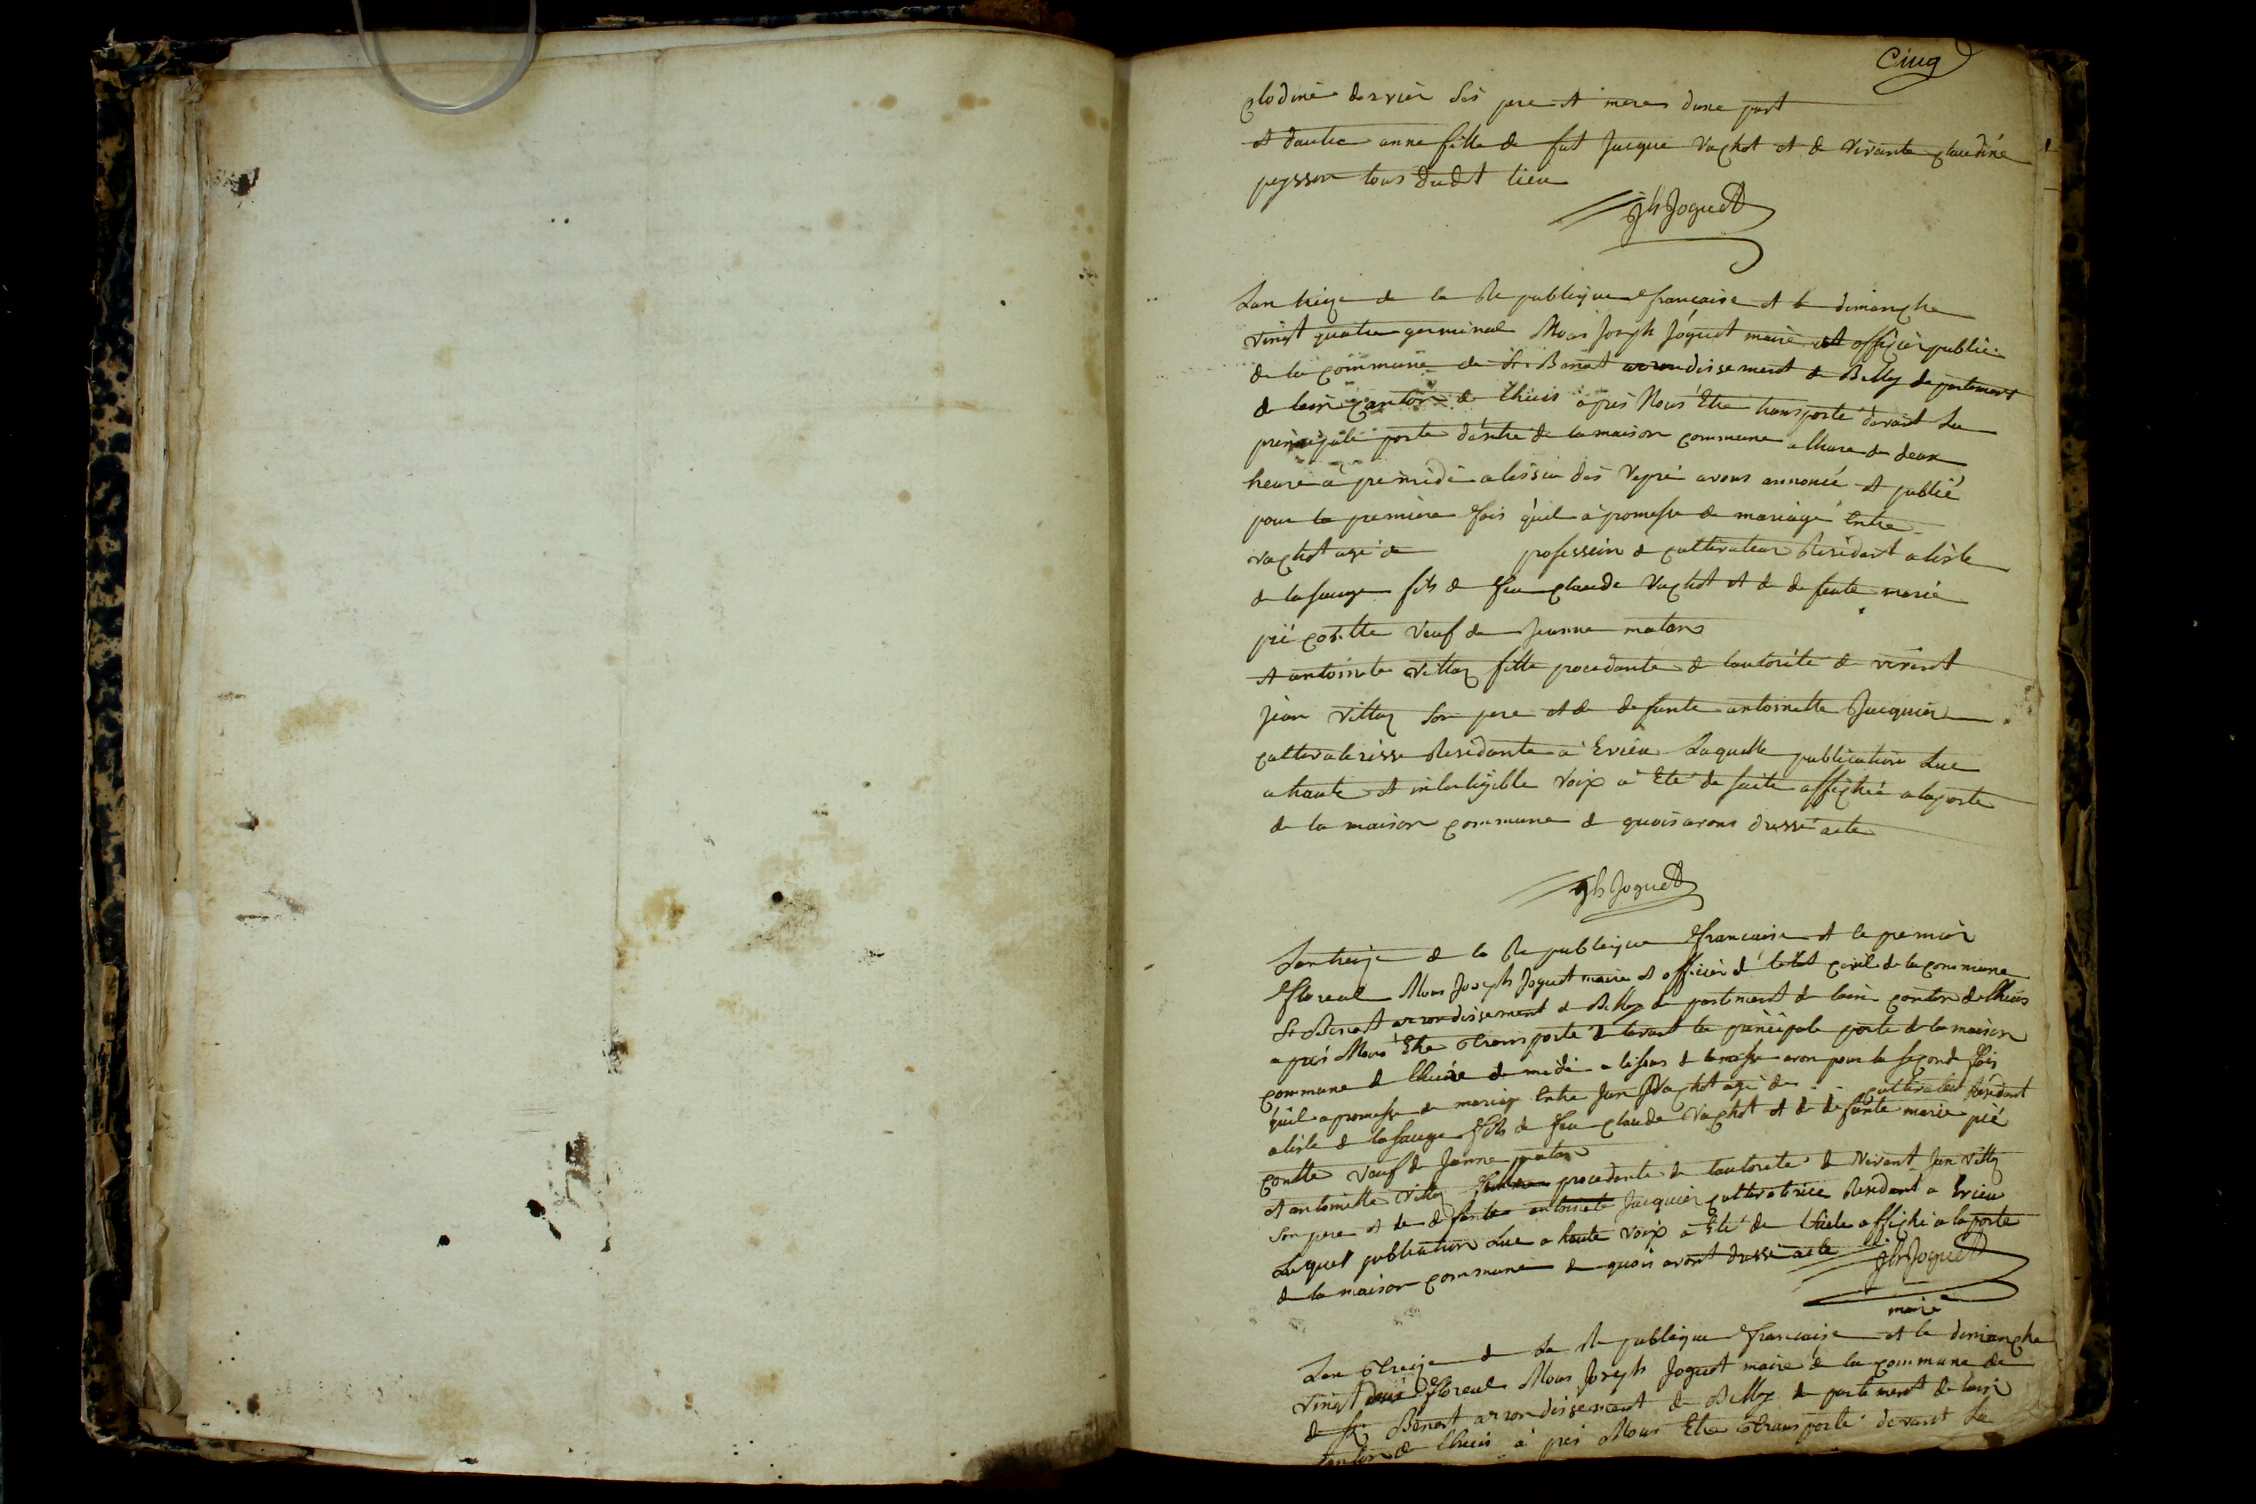 Cinq
Clodine dervier Ses pere et meres dune part
et dautre anne fille de fut Jacque Vachot et de vivante claudine
peysson tous dudt lieu
Jh Joguet
Lan treize de la Republique francaise et le dimanche
vingt quatre germinal Nous Joseph Joguet maire et officier public
de la commune de St. Benoit arrondissement de Belley departement
de lain canton de lhuis apres Nous Etre transporté devant La
principale porte dentré de la maison commune a lhure de deux
heure a pre midi a lissue des Vepré avons annoncé et publié
pour la premiere fois quil a promesse de mariage Entre
vachot agé de profession de cultivateur Residant a lisle
de la sauge fils de feu claude Vachot et de defunte marie
pié Veuf de Jeanne matan
et antoinete Vittoz fille procedante de lautorité de vivant
Jean Vittoz Son pere et de defunte antoinette Jacquier
cultivaterisse Residante a Evieu Laquelle publication Lue
a haute et intelligible Voix a Eté de suite affiché a la porte
de la maison commune de quois avons dressé acte
Jh Joguet
Lan treize de la Republique francaise et le premier
floreal Nous Joseph Joguet maire et officier de letat civil de la commune
St Benoit arrondissement de Belley departement de lain canton de lhuis
apres Nous Etre transporté devant la principale porte de la maison
commune de lheure de midi a lissus de la messe avon pour la segonde fois
quil a promesse de mariage Entre Jean Vachot agé de cultivateur Residant
a lisle de la sauge fils de feu claude Vachot et de defunte marie pié
Veuf de Janne matan
et antoinette Vittoz procedante de lautorité de vivant Jean Vittoz
Son pere et de defunte antoinete Jacquier cultivatrice Residant a Evieu
Laquel publication Lue a haute voix a Eté de suite affiché a la porte
de la maison commune de quois avont dressé acte Jh Joguet
maire
Lan treize de La Republique francaise et le dimanche
vingt deux floreal Nous Joseph Joguet maire de la commune de
de St Benoit arrondissement de Belley departement de lain
canton de lhuis a pres Nous Etre transporté devant La